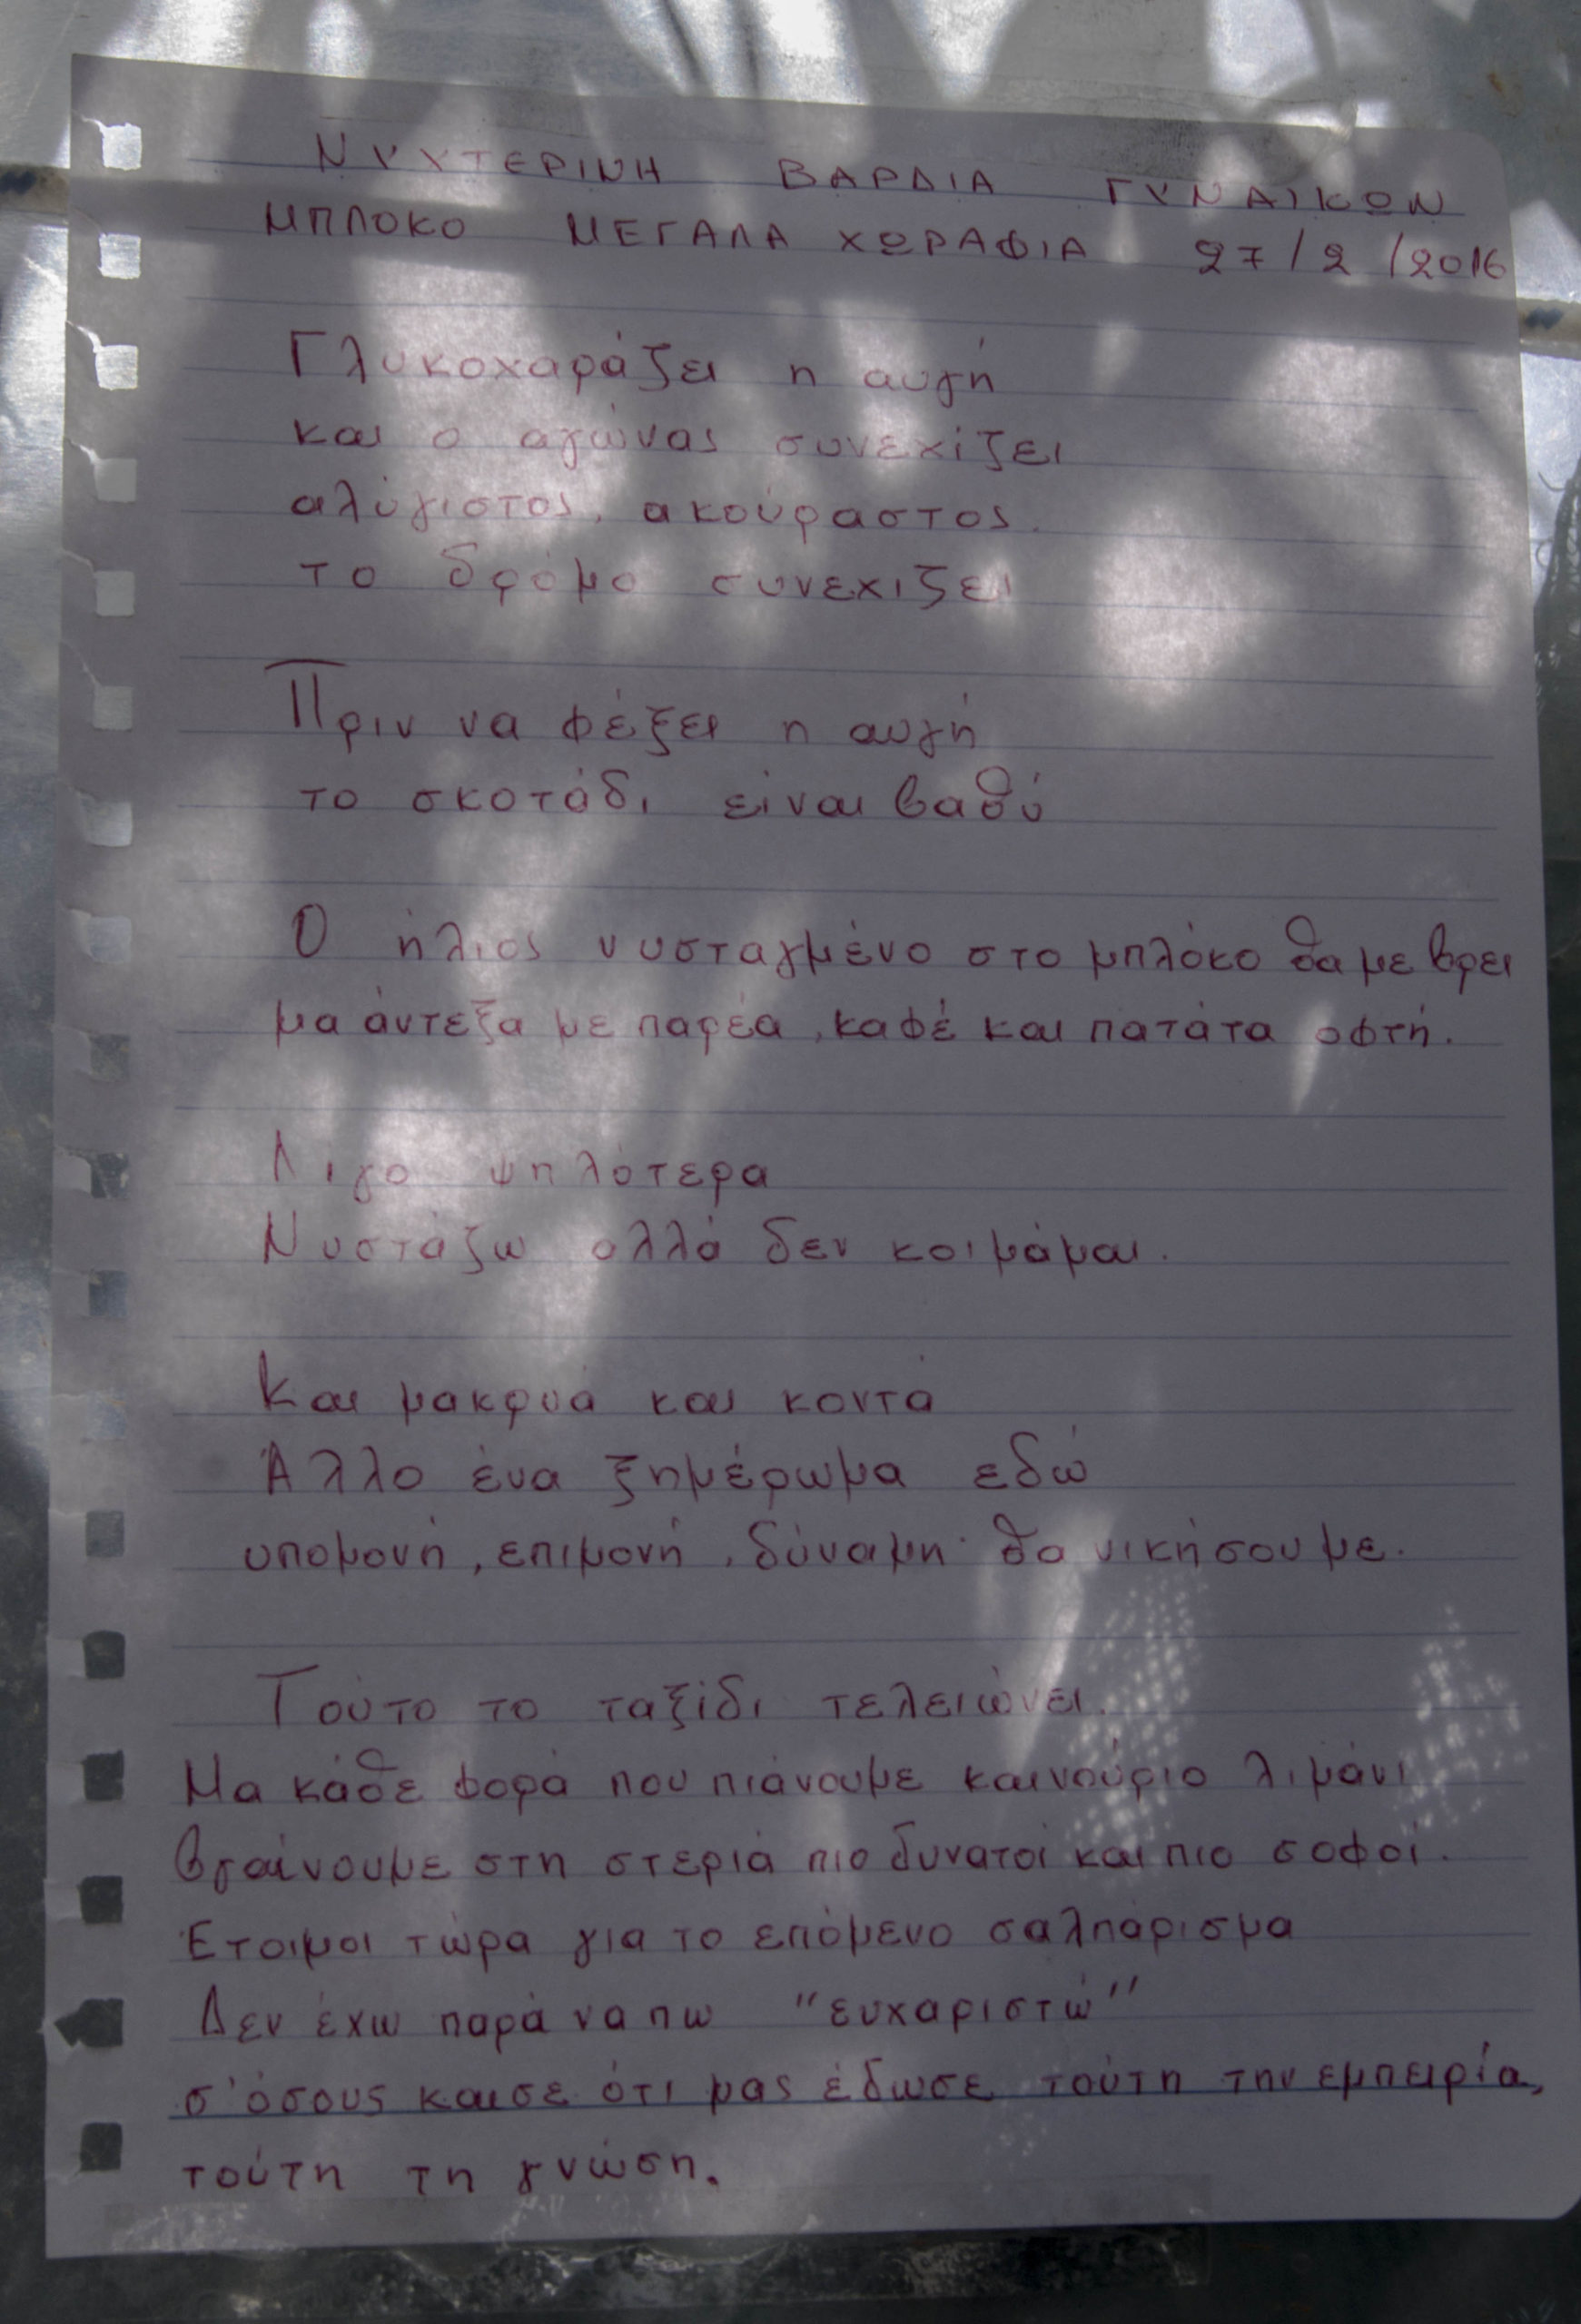 ΝΥΧΤΕΡΙΝΗ ΒΑΡΔΙΑ ΓΥΝΑΙΚΩΝ
ΜΠΛΟΚΟ ΜΕΓΑΛΑ ΧΩΡΑΦΙΑ 27/2/2016
Γλυκοχαράζει η αυγή
και ο αγώνας συνεχίζει
αλύγιστος, ακούραστος
το δρόμο συνεχιζει
Πριν να φέξει η αυγή
το σκοτάδι είναι βαθύ
Ο ήλιος νυσταγμένο στο μπλόκο θα με βρει
μα άντεξα με παρέα, καφέ και πατάτα οφτή.
Λιγο ψηλότερα
Νυστάζω αλλά δεν κοιμάμαι.
Και μακρυά και κοντά
Άλλο ένα ξημέρωμα εδώ
υπομονή, επιμονή, δύναμη θα νικήσουμε.
Τούτο το ταξίδι τελειώνει.
Μα κάθε φορά που πιάνουμε καινούριο λιμάνι
βγαίνουμε στη στεριά πιο δυνατοί και πιο σοφοί.
Έτοιμοι τώρα για το επόμενο σαλπάρισμα
Δεν έχω παρά να πω "ευχαριστώ"
σ'όσους και σε ότι μας έδωσε τούτη την εμπειρία,
τούτη τη γνώση.